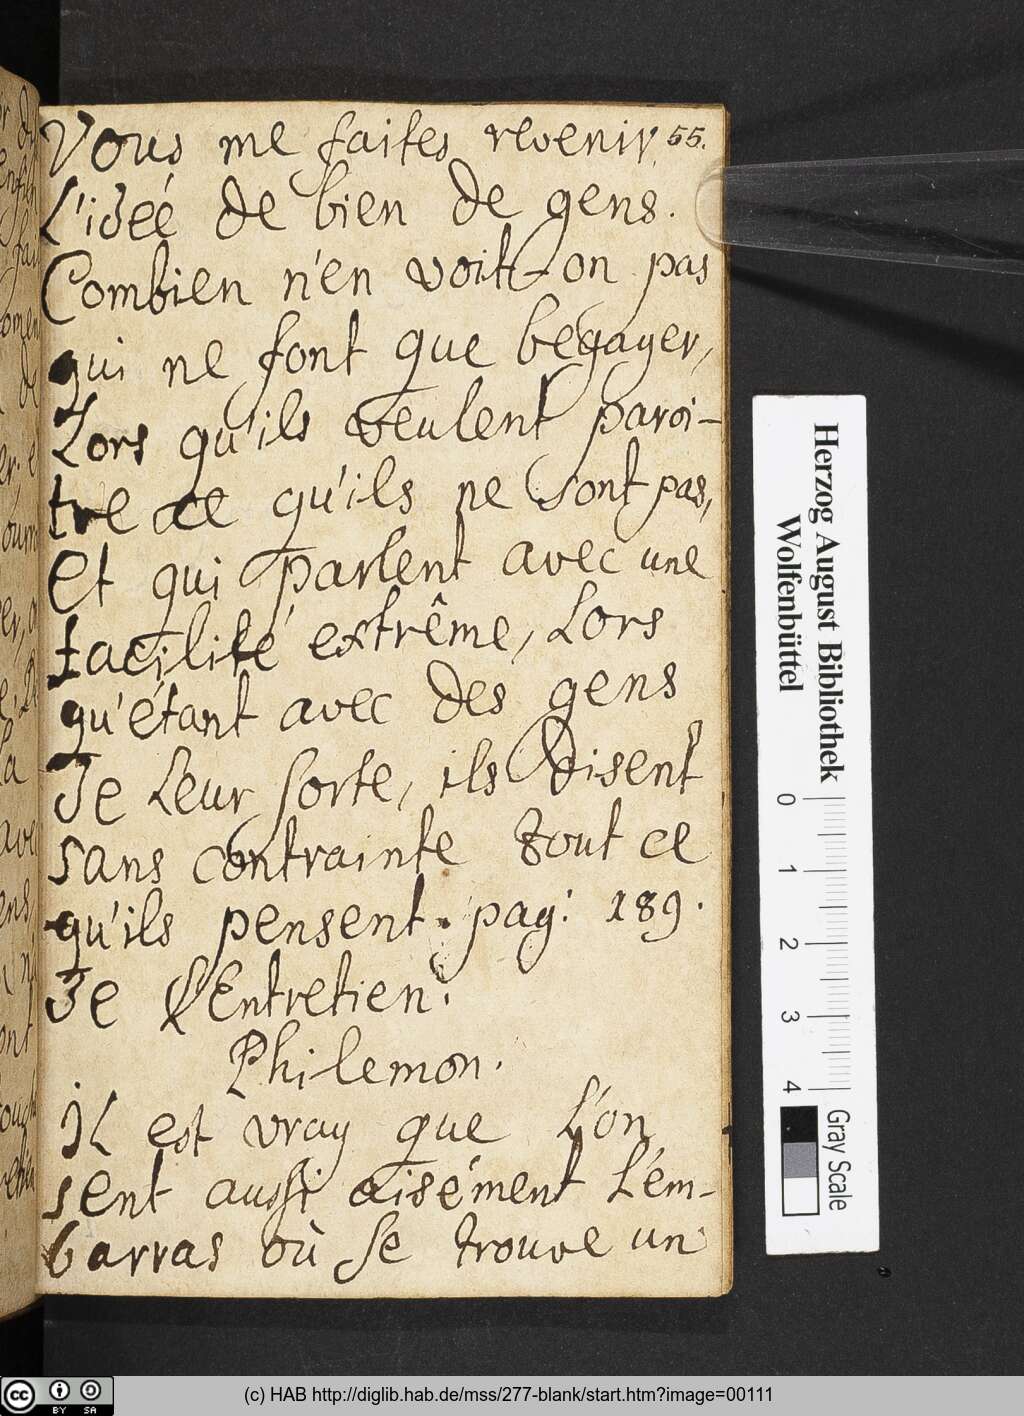 Vous me faites revenir 55.
L'ideé de bien de gens.
Combien n'en voit-on pas
qui ne font que begayer,
Lors qu'ils veulent paroi-
tre ce qu'ils ne sont pas,
et qui parlent avec une
facilité extrême, Lors
qu'étant avec des gens
de Leur sorte, ils disent
sans contrainte tout ce
qu'ils pensent. pag: 189.
de l'Entretien.
Philemon.
il est vray que L'on
sent aussi aisément L'em-
barras où se trouve un
Herzog August Bibliothek
Wolfenbüttel
0 1 2 3 4
Gray Scale
cc BY SA
(c) HAB http://diglib.hab.de/mss/277-blank/start.htm?image=00111